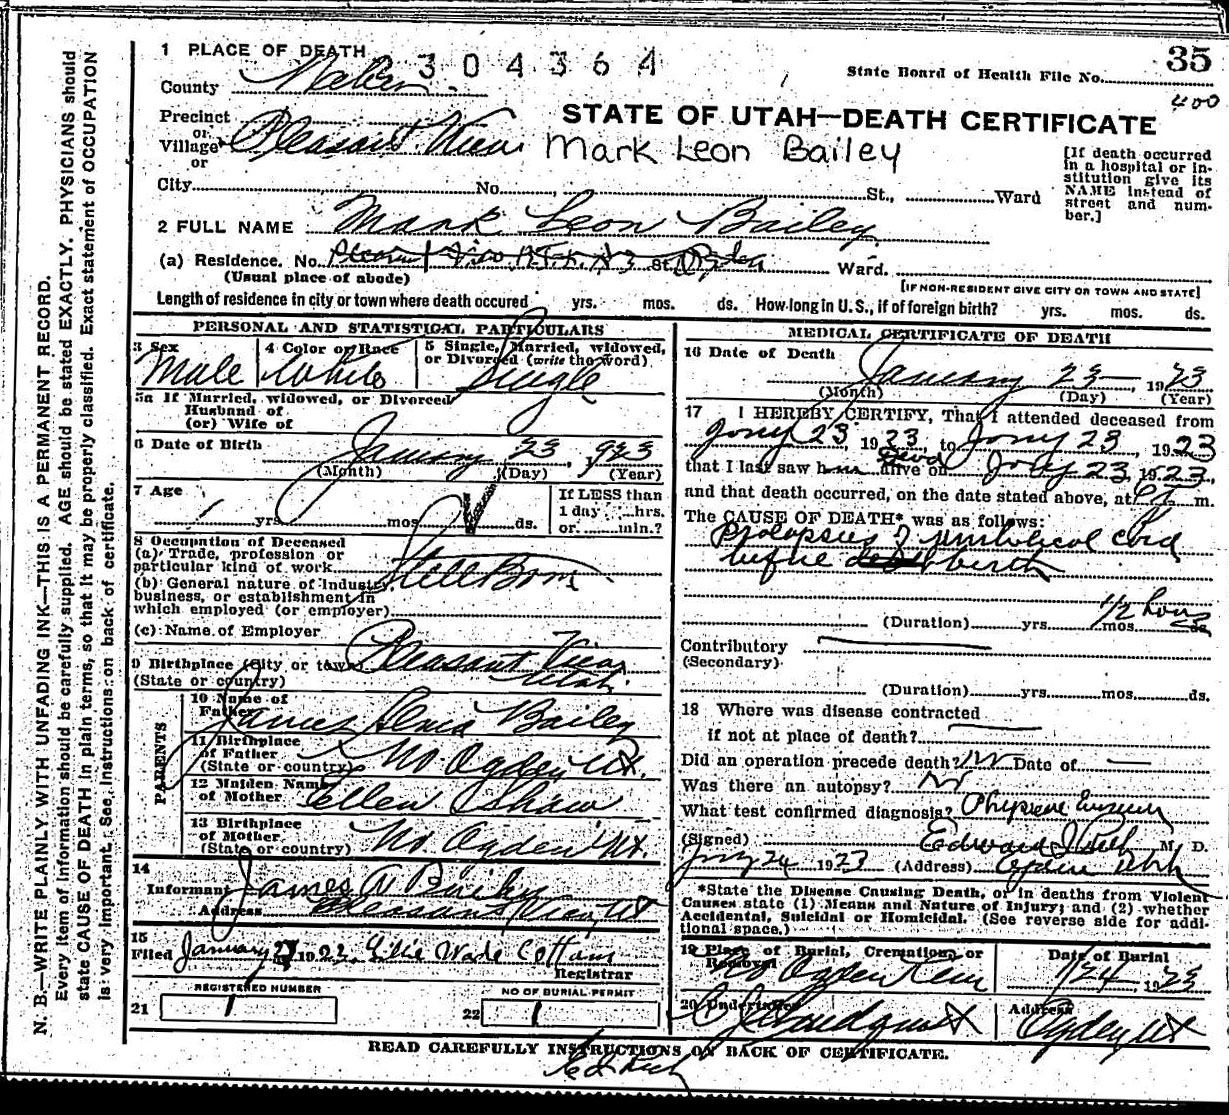 35
1 PLACE OF DEATH 304364
State Board of Health File No.
400
County Weber
STATE OF UTAH—DEATH CERTIFICATE
Precinct
or
Village Pleasant View
or
Mark Leon Bailey
[If death occurred
in a hospital or in-
stitution give its
NAME instead of
street and num-
ber.]
City No. , St., Ward
2 FULL NAME Mark Leon Bailey
(a) Residence. No. Pleasant View R.F.D. #3 St. Ogden Ward.
(Usual place of abode)
[IF NON-RESIDENT GIVE CITY OR TOWN AND STATE]
Length of residence in city or town where death occured yrs. mos. ds. How long in U.S., if of foreign birth? yrs. mos. ds.
PERSONAL AND STATISTICAL PARTICULARS
3 Sex
Male
4 Color or Race
White
5 Single, Married, widowed,
or Divorced (write the word)
Single
5a If Married, widowed, or Divorced
Husband of
(or) Wife of
6 Date of Birth January 23, 923
(Month) (Day) (Year)
7 Age
yrs mos ds.
If LESS than
1 day hrs.
or min.?
8 Occupation of Deceased
(a) Trade, profession or
particular kind of work
Still Born
(b) General nature of Industry,
business, or establishment in
which employed (or employer)
(c) Name of Employer
9 Birthplace (City or town) Pleasant View
(State or country) Utah.
PARENTS
10 Name of
Father James Bailey
11 Birthplace
of Father
(State or country) No. Ogden Ut.
12 Maiden Name
of Mother Ellen Shaw
13 Birthplace
of Mother
(State or country) No. Ogden Ut.
14
Informant James A Bailey
Address Pleasant View, Ut
15
Filed January 27 1923. Ellie Wade Cottam
Registrar
REGISTERED NUMBER
21 1
NO OF BURIAL PERMIT
22 1
MEDICAL CERTIFICATE OF DEATH
16 Date of Death
January 23, 1923
(Month) (Day) (Year)
17 I HEREBY CERTIFY, That I attended deceased from
Jany 23 1923, to Jany 23, 1923
that I last saw him alive on Dead Jany 23, 1923,
and that death occurred, on the date stated above, at m.
The CAUSE OF DEATH* was as follows:
Prolapsus of umbilical Cord
before birth
(Duration) yrs. mos. 1/2 hour ds.
Contributory
(Secondary)
(Duration) yrs. mos. ds.
18 Where was disease contracted
if not at place of death?
Did an operation precede death? No Date of
Was there an autopsy? No
What test confirmed diagnosis?
(Signed) Edward I Rich M. D.
Jany 24 1923 (Address) Ogden Utah
*State the Disease Causing Death, or in deaths from Violent
Causes state (1) Means and Nature of Injury; and (2) whether
Accidental, Suicidal or Homicidal. (See reverse side for addi-
tional space.)
19 Place of Burial, Cremation, or
Removal
No Ogden Cem
Date of Burial
1/24 1923
20 Undertaker
Address
Ogden Ut
READ CAREFULLY INSTRUCTIONS ON BACK OF CERTIFICATE.
Ed Rich
N. B.—WRITE PLAINLY WITH UNFADING INK—THIS IS A PERMANENT RECORD.
Every item of information should be carefully supplied. AGE should be stated EXACTLY. PHYSICIANS should
state CAUSE OF DEATH in plain terms, so that it may be properly classified. Exact statement of OCCUPATION
is very important. See instructions on back of certificate.